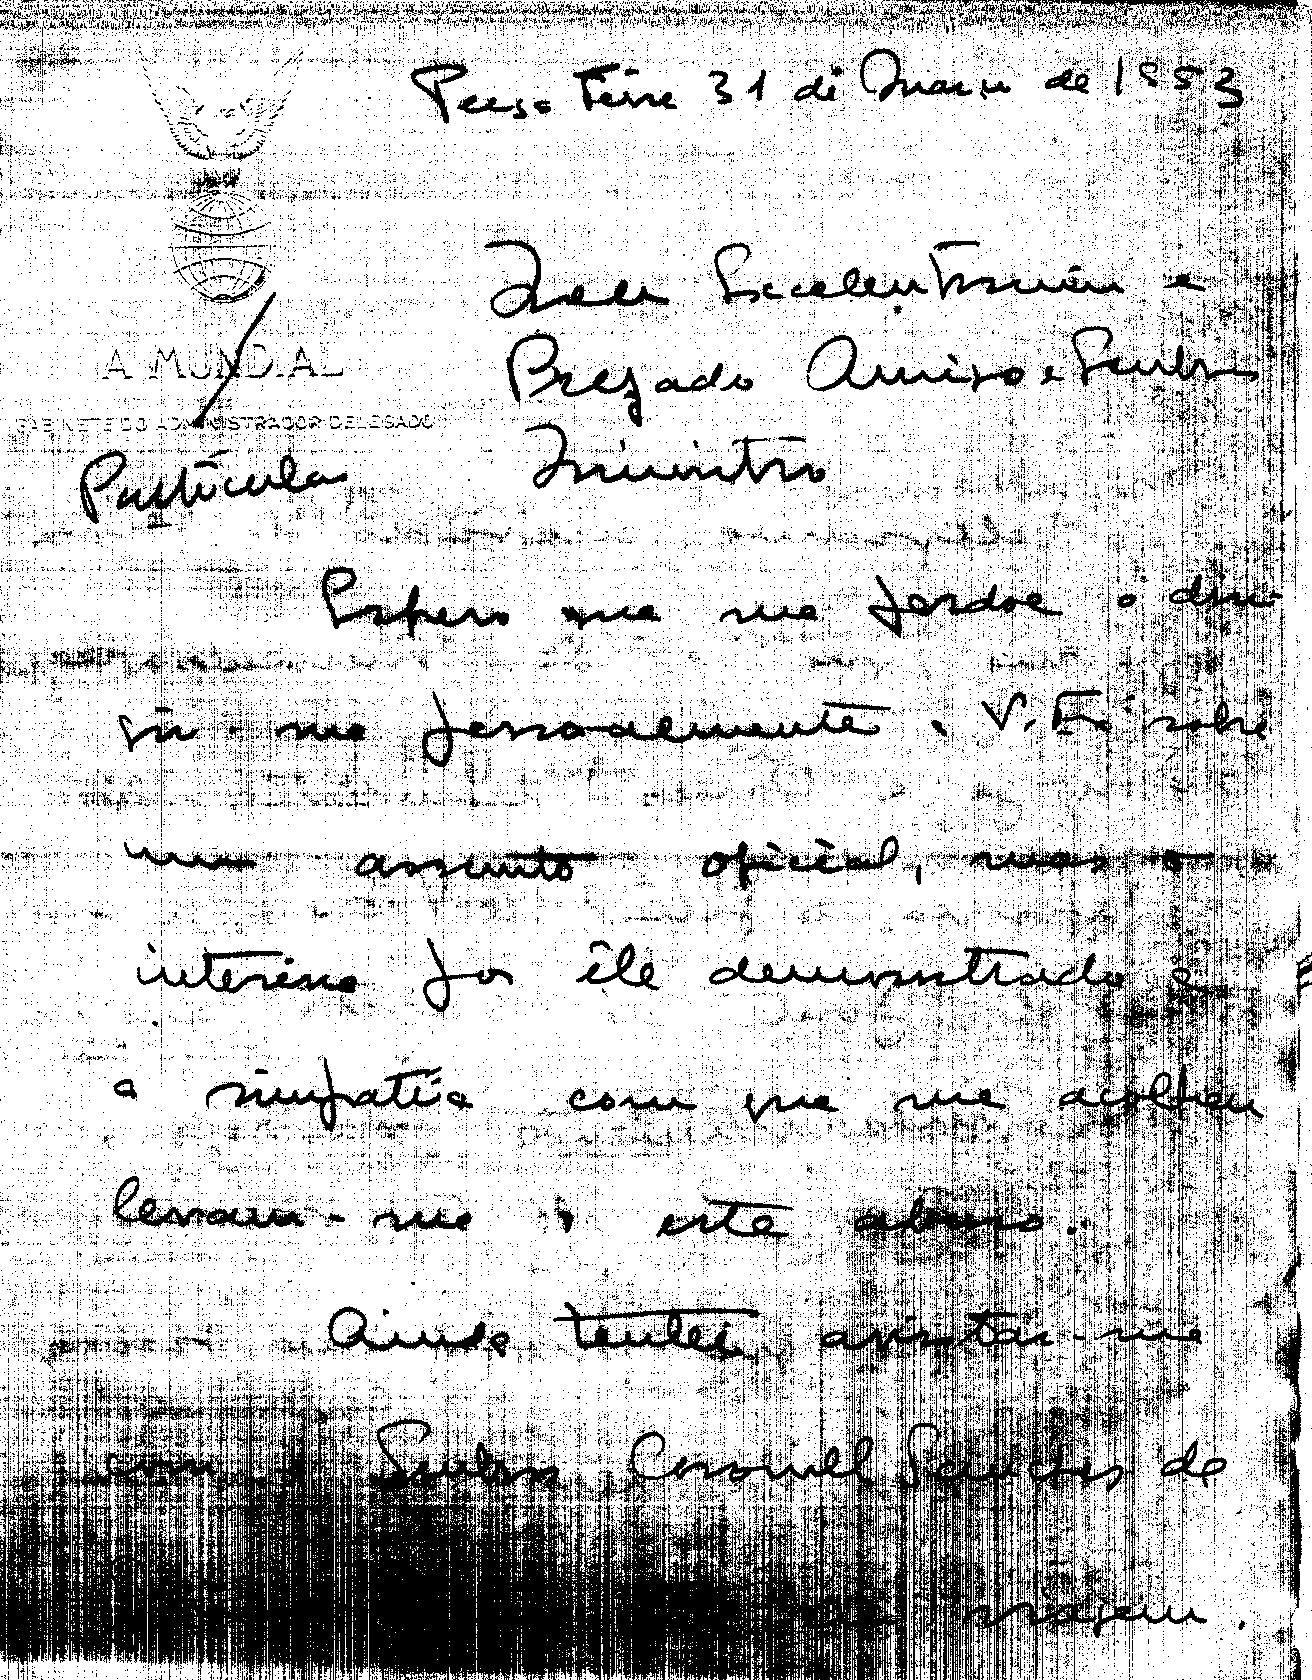 Terça Feira 31 de Março de 1953
Meu Excelentíssimo e
A MUNDIAL
Prezado Amigo e Senhor
GABINETE DO ADMINISTRADOR DELEGADO
Ministro
Particular
Espero que me perdoe o diri-
gir-me pessoalmente a V. Exª sobre
um assunto oficial, mas o
interesse por êle demonstrado e
a simpatia com que me acolheu
levam-me a este abuso.
Ainda tentei avistar-me
com o Senhor Coronel Sanches de
viagem.